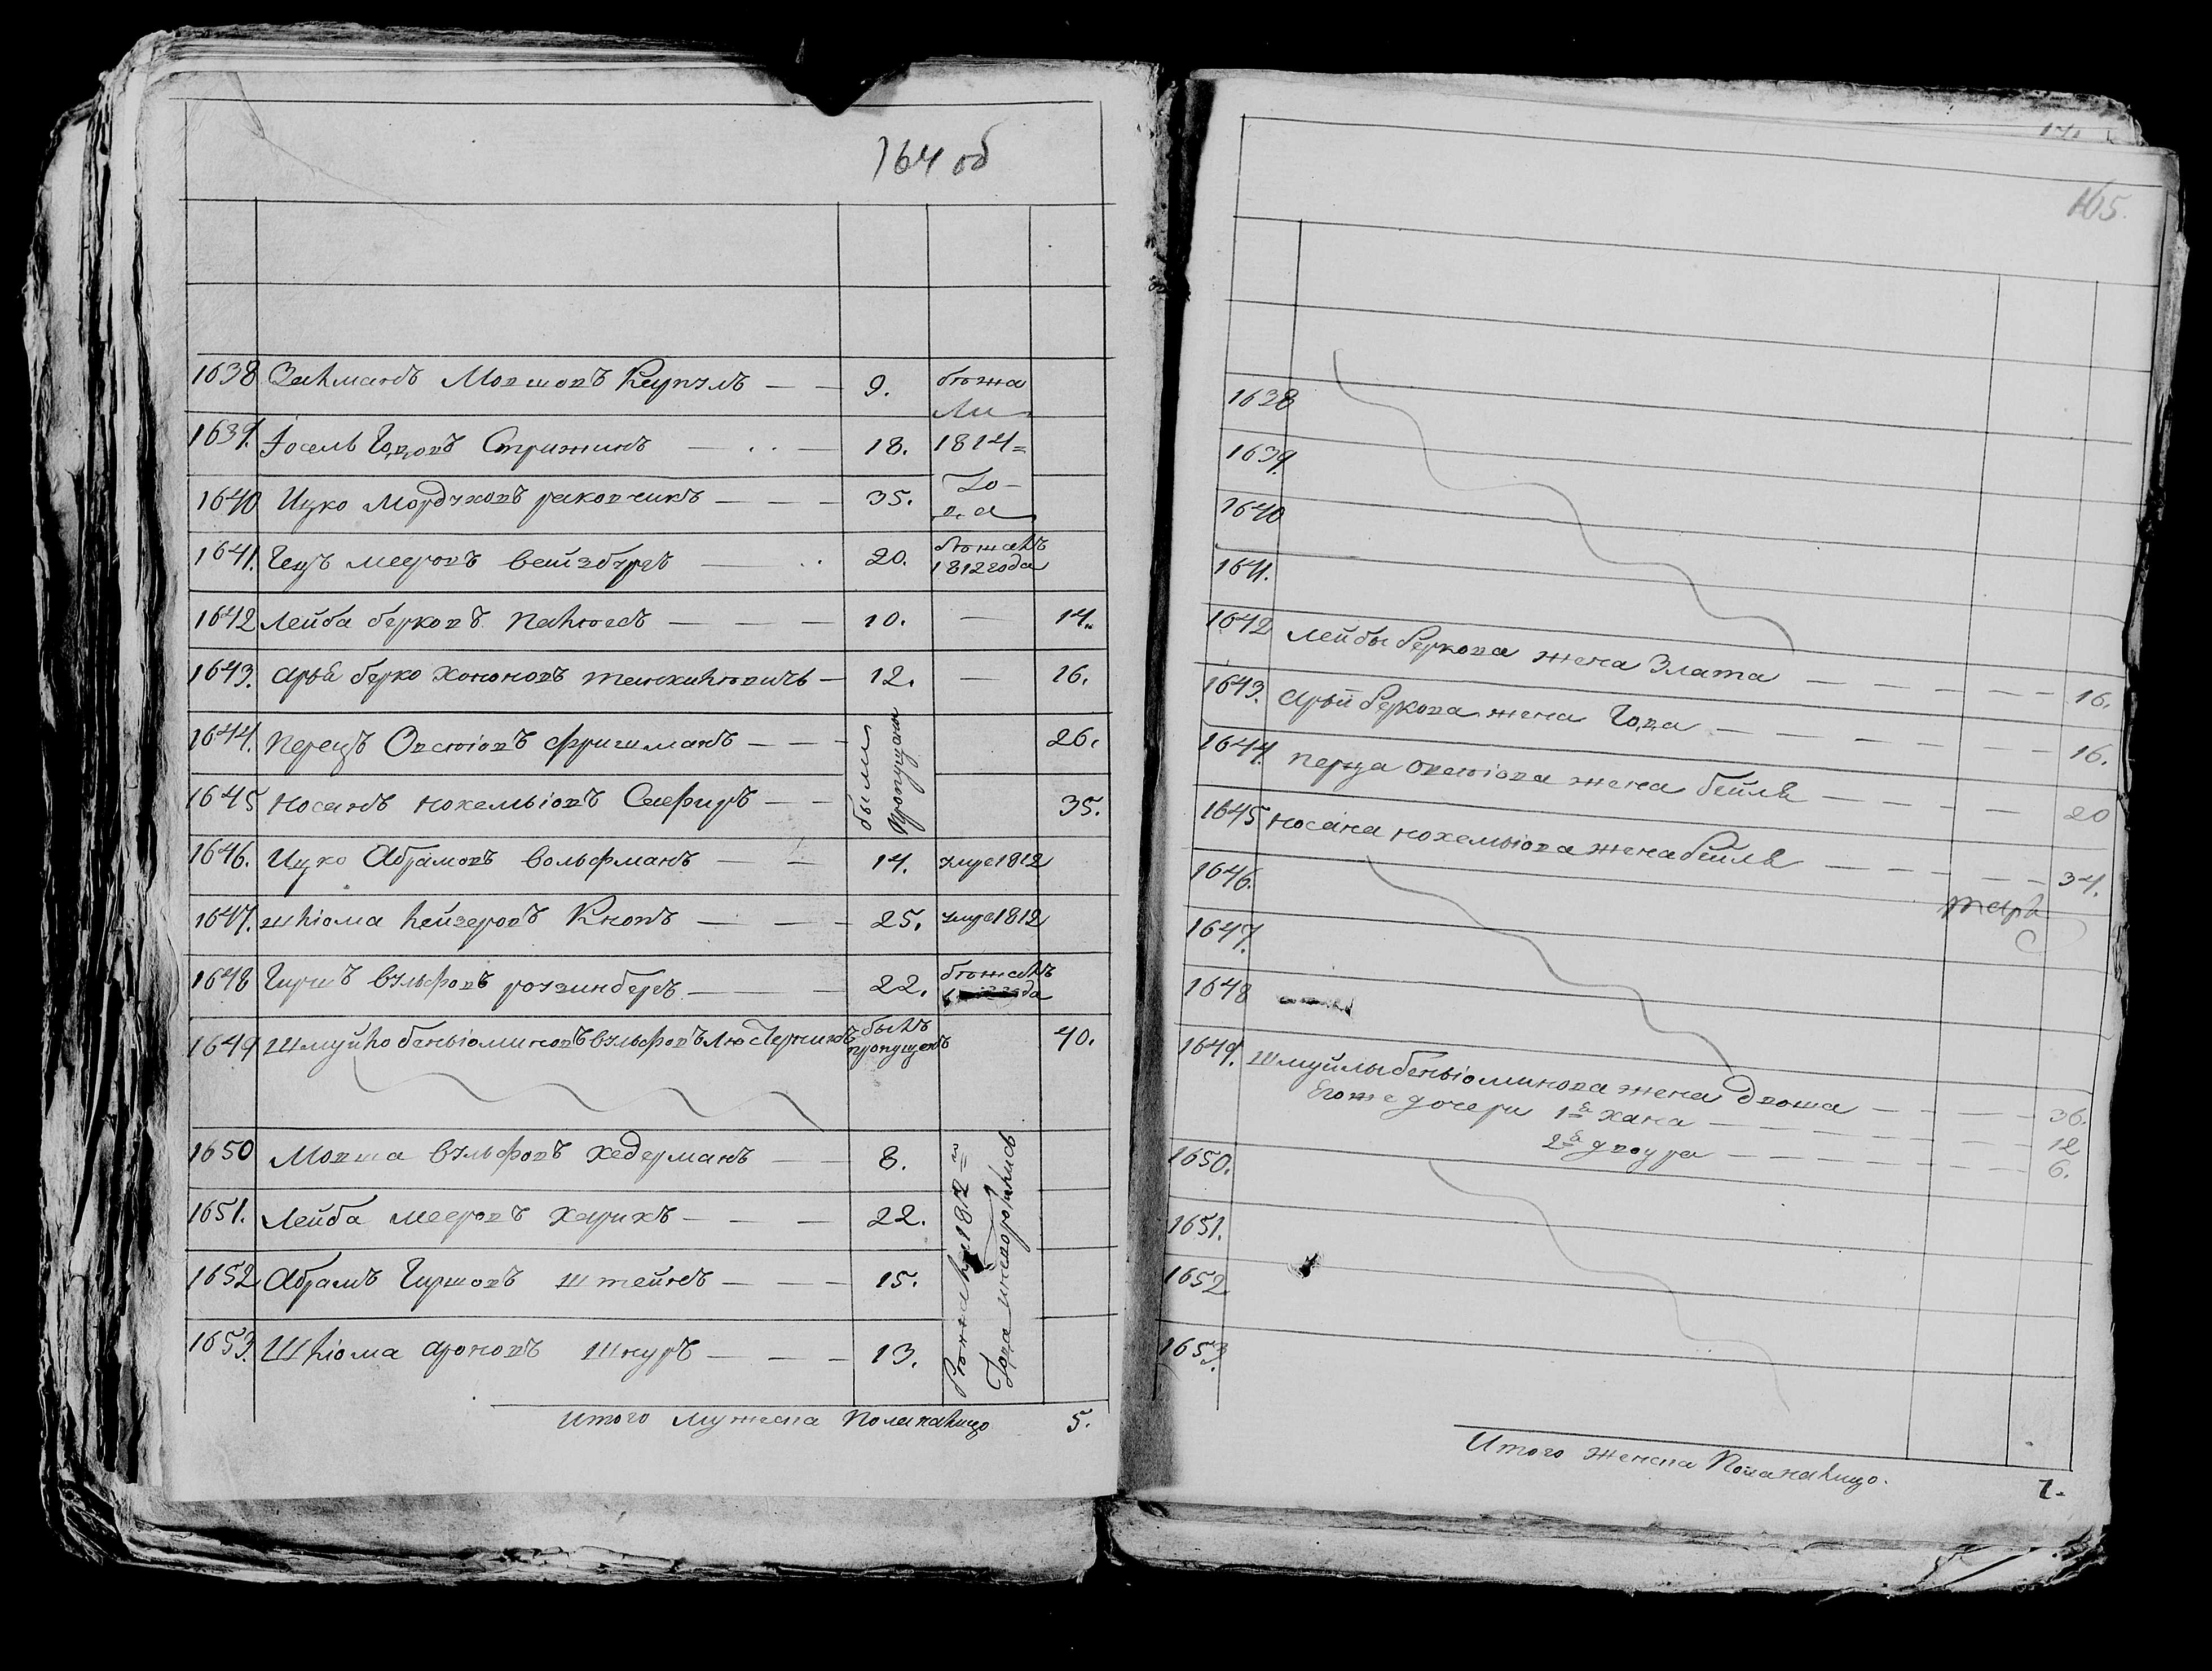 164 об
1638 Залманъ Мовшовъ Карпелъ — — 9. бѣжа
ли
1639. Іосель Говповъ Стрижинъ — — 18. 1814=
го-
1640 Ицко Мордуховъ раковчикъ — — — 35. да
1641. Гецъ мееровъ вейзбургъ — 20. бѣжалъ
1812 года
1642 Лейба берковъ — — — 10. — 14.
1643. Арья берко хононовъ — 12. — 16.
1644. Перецъ Овсѣіовъ фришманъ — — — были пропущены 26.
1645 Носанъ нохемьіовъ Сафиръ — — 35.
1646. Ицко Абрамовъ вольфманъ — — 14. умре 1812
1647. шліома лейзеровъ Кнопъ — — — 25. умре 1812
1648 Гиршъ вульфовъ розинбергъ — — 22. бѣжалъ
года
1649 Шмуйло беньіоминовъ вульфовъ былъ 40.
пропущенъ
1650 Мовша вульфовъ хедерманъ — — 8.
1651. Лейба мееровъ харикъ — — — 22. 1812=го
1652 Абрамъ Гиршовъ штейнъ — — — 15. Года
1653. Шліома ароновъ шнуръ — — — 13.
Итого мужеска Пола налицо 5.
165.
1638
1639.
1640
1641.
1642 Лейбы беркова жена Злата — — — — — 16.
1643. Арьи беркова жена — — — — — 16.
1644. Перца овсѣіова жена бейля — — — — 20
1645 Носана нохемьіова жена бейля — — — — — 34.
1646.
1647.
1648
1649. Шмуйлы беньіоминова жена Двоша — — — — 36.
Его же дочери 1я хана — — — — — — 12
2я двоура — — — — — — 6.
1650.
1651.
1652
1653.
Итого женска Пола налицо. 7.